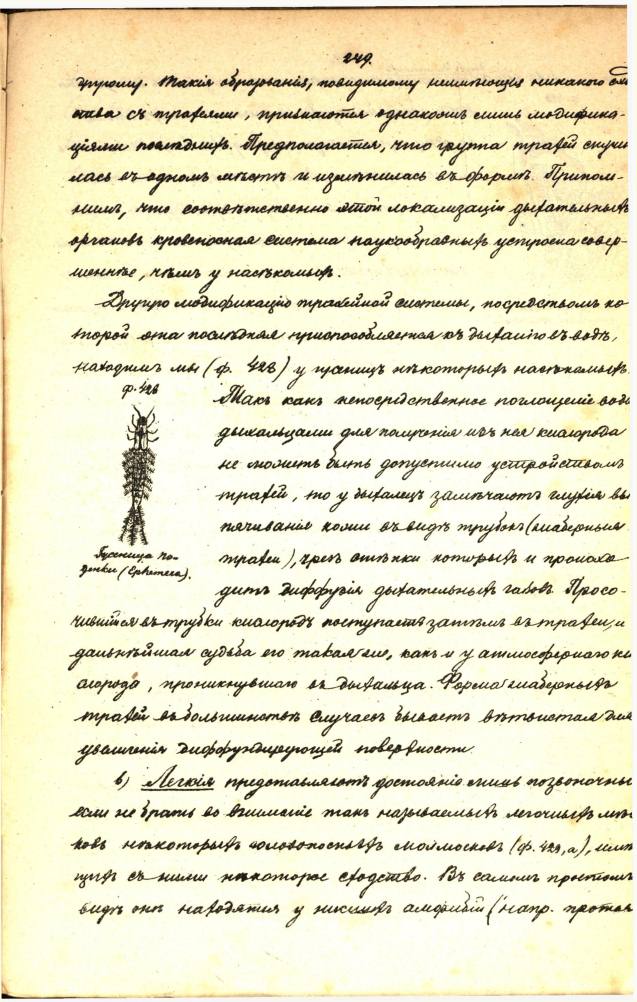 249.
другому. Такія образованія, повидимому неимѣющія никакого
ства съ трахеями, признаются однакожъ лишь модифика-
ціями послѣднихъ. Предполагается, что группа трахей скучи
лась въ одномъ мѣстѣ и измѣнилась въ формѣ. Припом-
нимъ, что соотвѣтственно этой локализаціи дыхательныхъ
органовъ кровеносная система паукообразныхъ устроена совер-
шеннѣе, чѣмъ у насѣкомыхъ.
Другую модификацію трахейной системы, посредствомъ ко
торой эта послѣдняя приспособляется къ дыханію въ водѣ,
находимъ мы (ф. 428) у гусеницъ нѣкоторыхъ насѣкомыхъ
ф. 428
Такъ какъ непосредственное поглощеніе воды
дыхальцами для полученія изъ нея кислорода
не можетъ быть допустимо устройствомъ
трахей, то у дыхалецъ замѣчаютъ глухія вы
пячиванія кожи въ видѣ трубокъ (жаберныя
трахеи), чрезъ стѣнки которыхъ и происхо
дитъ диффузія дыхательныхъ газовъ. Просо-
Гусеница по-
денки (Ephemera).
чившійся въ трубки кислородъ поступаетъ затѣмъ въ трахеи, и
дальнѣйшая судьба его такая же, какъ и у атмосфернаго ки
слорода, проникнувшаго въ дыхальца. Форма жаберныхъ
трахей въ большинствѣ случаевъ бываетъ вѣтвистая для
увеличенія диффундирующей поверхности.
в) Легкія представляютъ достояніе лишь позвоночны
если не брать во вниманіе такъ называемыхъ легочныхъ мѣш
ковъ нѣкоторыхъ головоносныхъ моллюсковъ (ф. 429, а), имѣю
щихъ съ ними нѣкоторое сходство. Въ самомъ простомъ
видѣ онѣ находятся у низшихъ амфибій (напр. протея